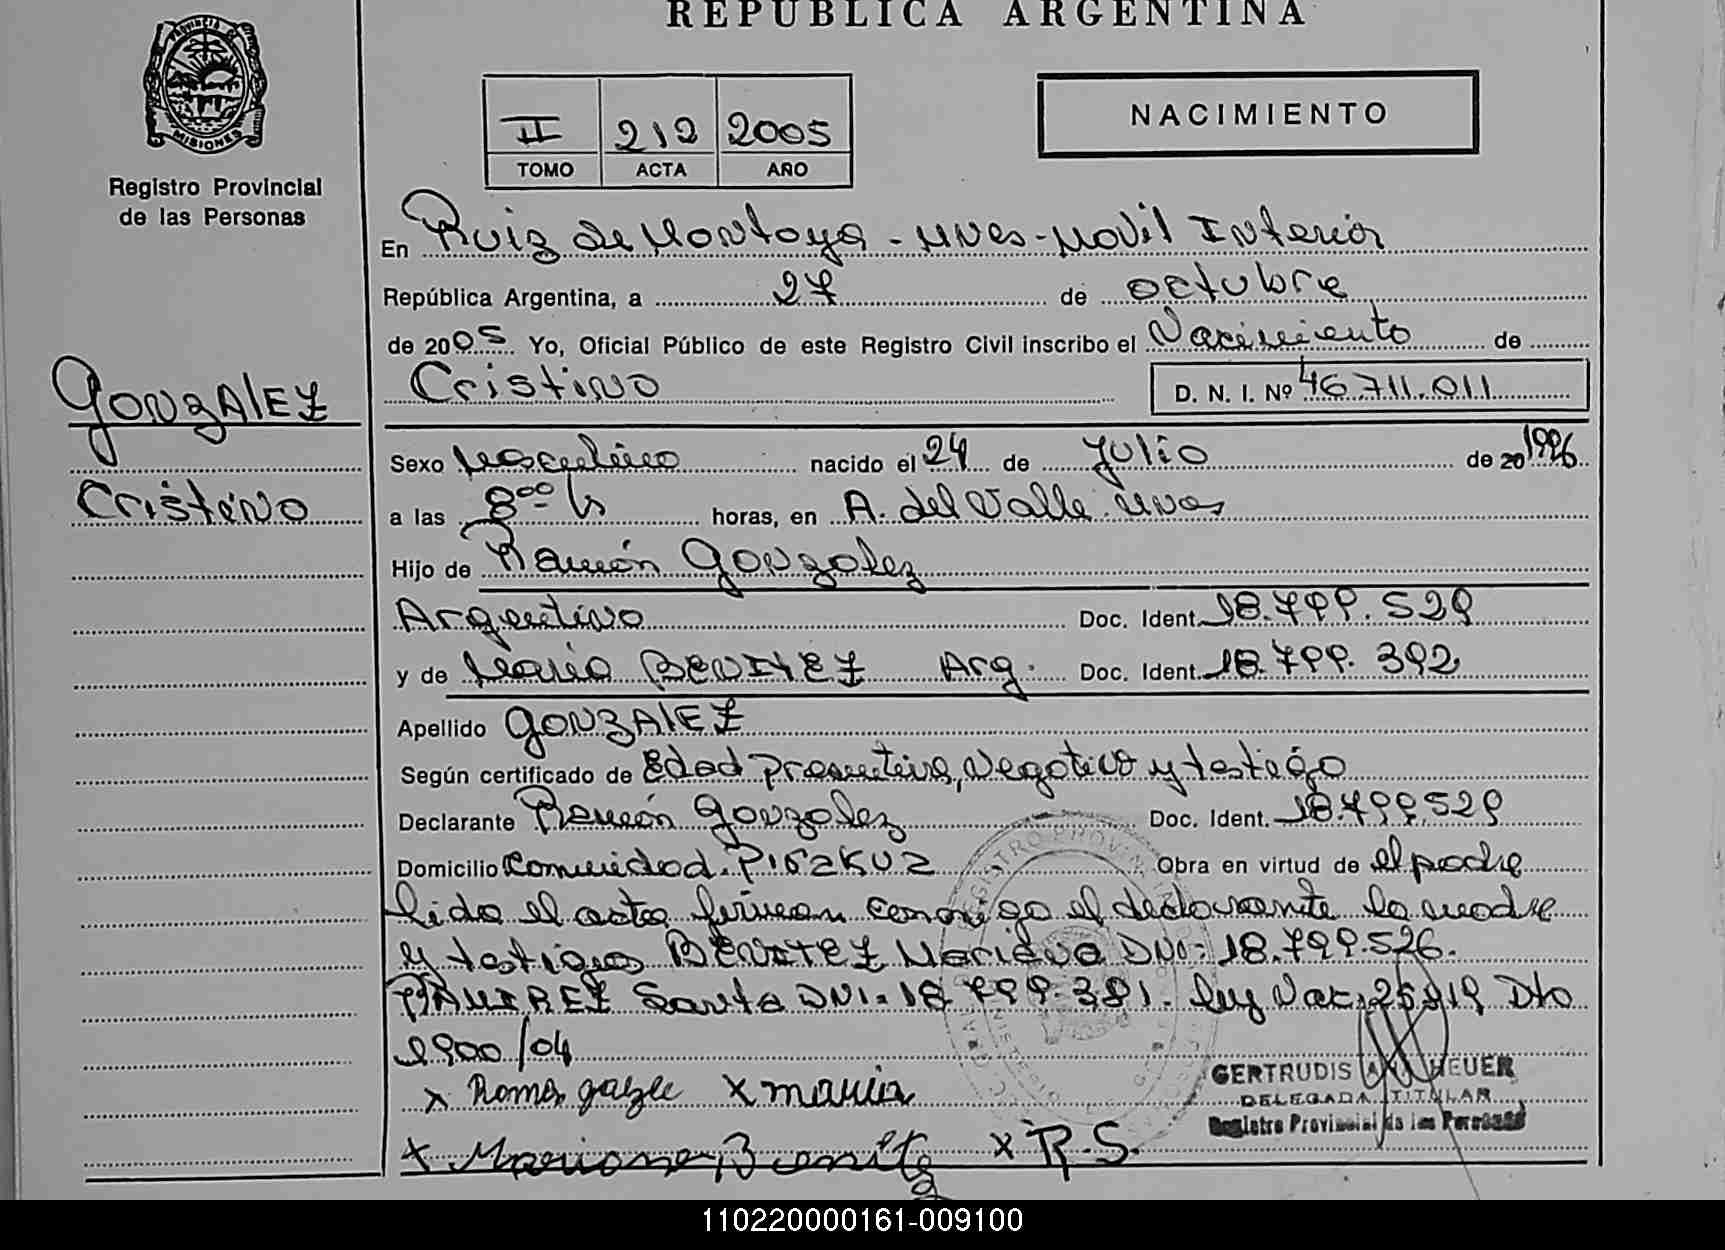 REPUBLICA ARGENTINA
PROVINCIA DE
MISIONES
Registro Provincial
de las Personas
II 212 2005
TOMO ACTA AÑO
NACIMIENTO
En Ruiz de Montoya - Mnes - Movil Interior
República Argentina, a 27 de octubre
de 2005 Yo, Oficial Público de este Registro Civil inscribo el Nacimiento de
Cristino D. N. I. Nº 46.711.011
GONZALEZ
Cristino
Sexo Masculino nacido el 24 de Julio de 20 1996
a las 8 00 hs horas, en A. del Valle. Mnes
Hijo de Ramón Gonzalez
Argentino Doc. Ident. 18.799.529
y de Maria BENITEZ Arg. Doc. Ident. 18.799.392
Apellido GONZALEZ
Según certificado de Edad presuntiva, Negativo y testigo
Declarante Ramón Gonzalez Doc. Ident. 18.799.529
Domicilio Comunidad Obra en virtud de el padre
Lida el acta firman conmigo el declarante la madre
y testigos BENITEZ Mariana DNI: 18.799.526.
RAMIREZ Santa DNI: 18.799.381. Ley Nac. 25.819 Dto
2900/04
x x maria
x Mariana Benitez x R.S.
GERTRUDIS HEUER
DELEGADA TITULAR
Registro Provincial de las Personas
110220000161-009100